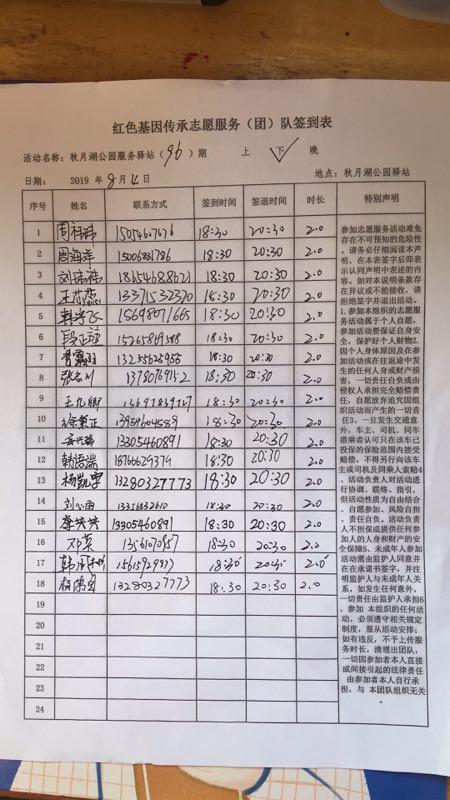 红色基因传承志愿服务（团）队签到表
活动名称：秋月湖公园服务驿站（96）期 上 下 晚
日期： 2019 年8月 日 地点：秋月湖公园驿站
序号 姓名 联系方式 签到时间 签退时间 时长 特别声明
1 18:30 20:30 2.0
2 周海洋 15006881786 18:30 20:30 2.0
3 18654688621 18:30 20:30 2.0
4 13371532370 18:30 20:30 2.0
5 15698071665 18:30 20:30 2.0
6 15265869588 18:30 20:30 2.0
7 18:30 20:30 2.0
8 13780769152 18:30 20:30 2.0
9 18:30 20:30 2.0
10 18:30 20:30 2.0
11 13305460891 18:30 20:30 2.0
12 18766629374 18:30 20:30 2.0
13 杨凯宇 13280327773 18:30 20:30 2.0
14 刘心雨 18:30 20:30 2.0
15 13305460891 18:30 20:30 2.0
16 邓荣 18:30 20:30 2.0
17 18:30 20:30 2.0
18 13280327773 18:30 20:30 2.0
19
20
21
22
23
24
参加志愿服务活动难免
存在不可预知的危险性
，请务必仔细阅读本声
明，在本表签字后即表
示认同声明中表述的内
容。如对本说明条款存
在异议或不能接收，请
拒绝签字并退出活动。
1.参加本组织的志愿服
务活动属于个人自愿，
参加活动要保证自身安
全，保护好个人财物2.
因个人身体原因及在参
加活动或在往返途中发
生的任何人身或财产损
害，一切责任自负或由
侵权人承担完全赔偿责
任，自愿放弃追究因组织
活动而产生的一切责
任3、一旦发生交通意
外，车主、司机、同车
搭乘者认可只在该车已
投保的保险范围内接受
赔偿，不得另行向该车
主或司机及同乘人索赔4
、活动负责人对活动进
行协调、联络、指引，
但活动性质为自由结合
、自愿参加、风险自担
、责任自负。活动负责
人不担保或提供任何参
加人的人身和财产的安
全保障5、未成年人参加
活动需由监护人同意并
在在承诺书签字，并注
明监护人与未成年人关
系，如发生任何意外，
一切责任由监护人承担6
、参加 本组织的任何活
动，必须遵守相关规定
制度，服从活动安排；
如有违反，不予上传服
务时长，清理出团队，
一切因参加者本人直接
或间接引起的法律责任
由参加者本人自行承
担，与 本团队组织无关